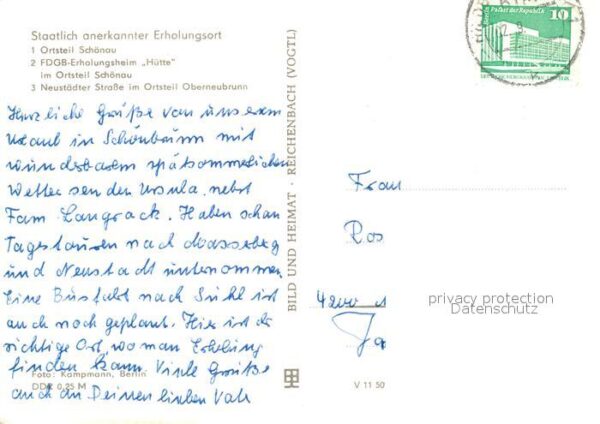 Staatlich anerkannter Erholungsort
1 Ortsteil Schönau
2 FDGB-Erholungsheim „Hütte"
im Ortsteil Schönau
3 Neustädter Straße im Ortsteil Oberneubrunn
Herzliche Grüße von unserem
Urlaub in Schönbrunn mit
wunderbarem spätsommerlichen
Wetter senden Ursula nebst
Fam Langrock. Haben schon
Tagestouren nach Masserberg
und Neustadt unternommen
Eine Busfahrt nach Suhl ist
auch noch geplant. Hier ist der
richtige Ort, wo man Erholung
finden kann. Viele Grüße
auch an Deinen lieben Vati
Foto: Kampmann, Berlin
DDR 0,25 M
BILD UND HEIMAT · REICHENBACH (VOGTL)
V 11 50
Berlin Palast der Republik
10
Frau
Ros
privacy protection
Datenschutz